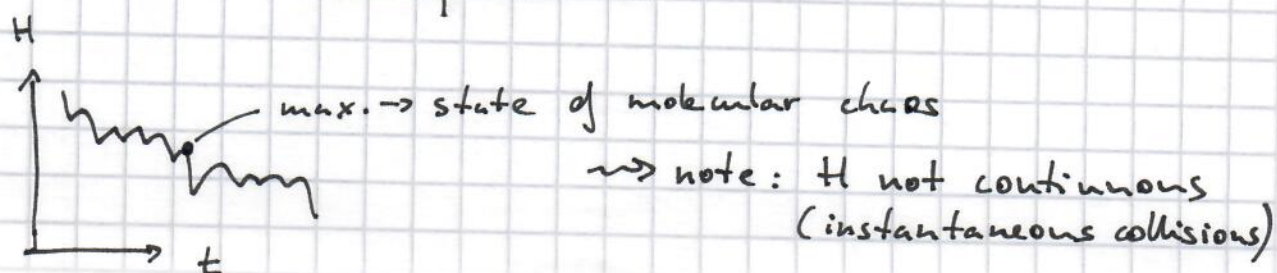 H
max. → state of molecular chaos
~> note: H not continuous
(instantaneous collisions)
t